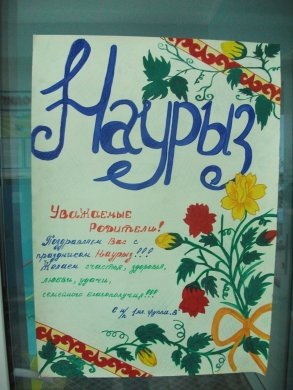 Наурыз
Уважаемые
Родители!
Поздравляем Вас с
праздником Наурыз!!!
Желаем счастья, здоровья,
любви, удачи,
семейного благополучия!!!
С